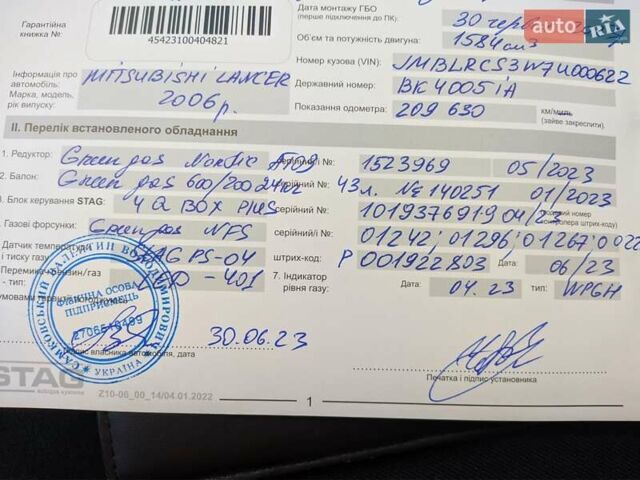 Гарантійна
книжка №:
45423100404821
Дата монтажу ГБО
(перше підключення до ПК):
30
auto RIA
Об'єм та потужність двигуна: 1584 см3
Номер кузова (VIN): JMBLRCS3W7U000622
Інформація про
автомобіль:
Марка, модель,
рік випуску:
MITSUBISHI LANCER
2006р.
Державний номер: ВК4005ІА
Показання одометра: 209 630 км/миль
(зайве закреслити)
II. Перелік встановленого обладнання
1. Редуктор: Green gas Nordic серійний/і №: 1523969 05/2023
2. Балон: Green gas 600/200 43 л. № 140251 01/2023
3. Блок керування STAG: 4 Q BOX Plus серійний/і №: 1019376919 04/23
4. Газові форсунки: Green gas NFS серійний/і №: 01242; 01296; 01267;
Датчик температури
та тиску газу: PS-04 штрих-код: P 001922803 Дата: 06/23
Перемикач бензин/газ
- тип: LED - 401
7. Індикатор
рівня газу: Дата: 04.23 - тип: WPGH
САМКОВСЬКИЙ ВАЛЕНТИН ВОЛОДИМИРОВИЧ
ФІЗИЧНА ОСОБА
ПІДПРИЄМЕЦЬ
УКРАЇНА
30.06.23
підпис власника автомобіля, дата
Печатка і підпис установника
STAG
Z10-06_00_14/04.01.2022
1